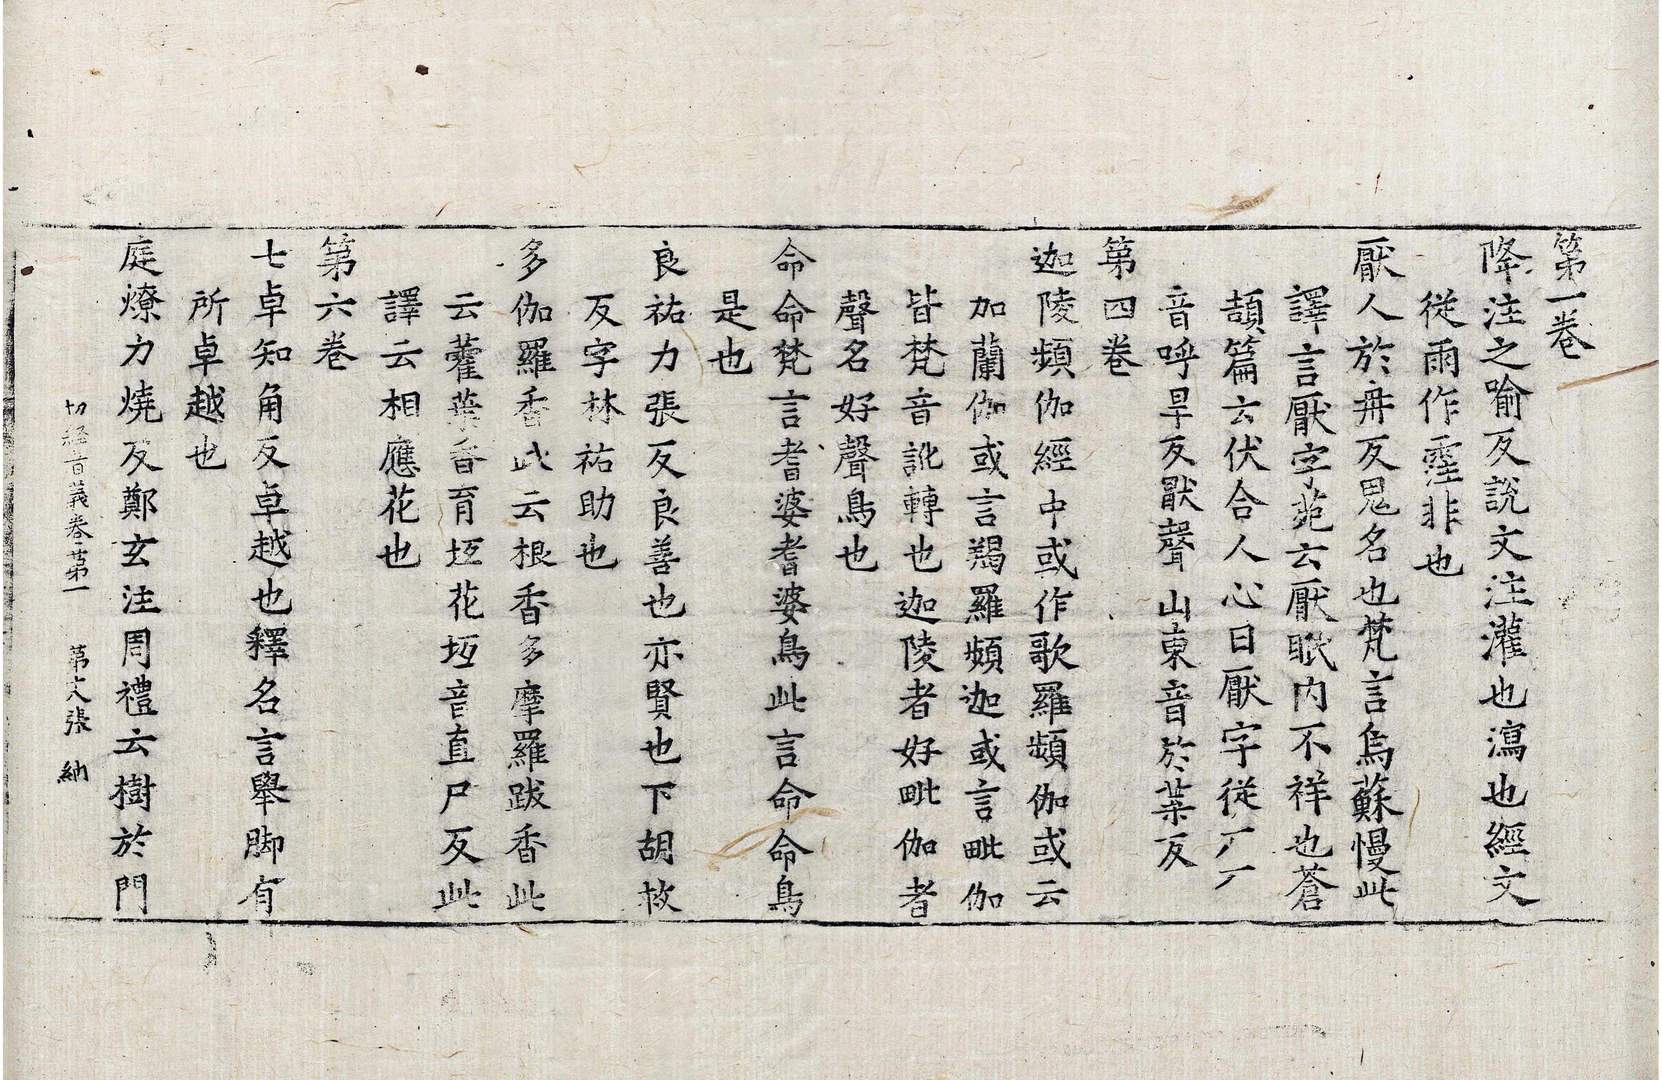 第一卷
降注之喻反說文注灌也瀉也經文
從雨作霔非也
厭人於冉反鬼名也梵言烏蘇慢此
譯言厭字苑云厭眠內不祥也蒼
頡篇云伏合人心曰厭字從厂厂
音呼旱反厭聲山東音於葉反
第四卷
迦陵頻伽經中或作歌羅頻伽或云
加蘭伽或言羯羅頻迦或言毗伽
皆梵音訛轉也迦陵者好毗伽者
聲名好聲鳥也
命命梵言耆婆耆婆鳥此言命命鳥
是也
良祐力張反良善也亦賢也下胡救
反字林祐助也
多伽羅香此云根香多摩羅跋香此
云藿葉香育坘花坘音直尸反此
譯云相應花也
第六卷
七卓知角反卓越也釋名言舉脚有
所卓越也
庭燎力燒反鄭玄注周禮云樹於門
切經音義卷第一　第張　納